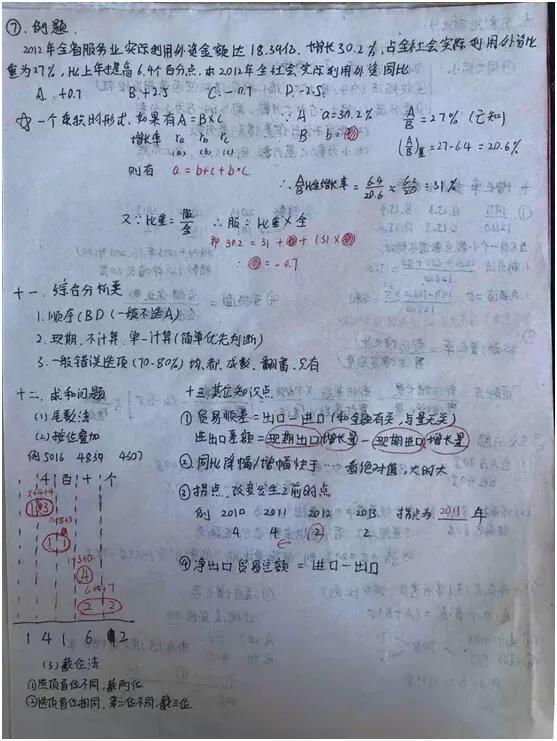 ⑦. 例题.
2012年全省服务业实际利用外资金额达18.39亿、增长30.2%,占全社会实际利用外资比
重为27%,比上年提高6.4个百分点,求2012年全社会实际利用外资同比
A. +0.7 B. +2.5 C. -0.7 D. -2.5
☆ 一个乘积的形式,如果有A=B×C
增长率 ra rb rc
(a) (b) (c)
则有 a=b+c+b·c
∵ A a=30.2%
B b=②
A/B=27% (已知)
(A/B)基=27-6.4=20.6%
∴ A/B比重增长率=6.4/20.6×=31%
又∵比重=服/全 ∴服=比重×全
即 30.2=31+②+(31×②)
∴②=-0.7
十一、综合分析类
1. 顺序CBD(一般不选A)
2. 现期、不计算、单一计算(简单优先判断)
3. 一般错误选项(70-80%) 均、都、成数、翻番、只有
十二、求和问题
(1) 尾数法
(2) 按位叠加
例 5016 4839 4307
千 百 十 个
5+4+4
13
0+8+3
11
1+3+0
4
6+9+7
22
1 4 1 6 2
(3) 截位法
①选项首位不同,截两位
②选项首位相同,第二位不同,截三位
十三其它知识点
①贸易顺差=出口-进口(和金额有关,与量无关)
进出差额=现期出口增长量-现期进口增长量
②同比降幅/增幅快于 看绝对值,大的大
③拐点.改变发生之前的点
例 2010 2011 2012 2013 拐点为 2011 年
4 4 2 2
④净出口贸易总额=进口-出口